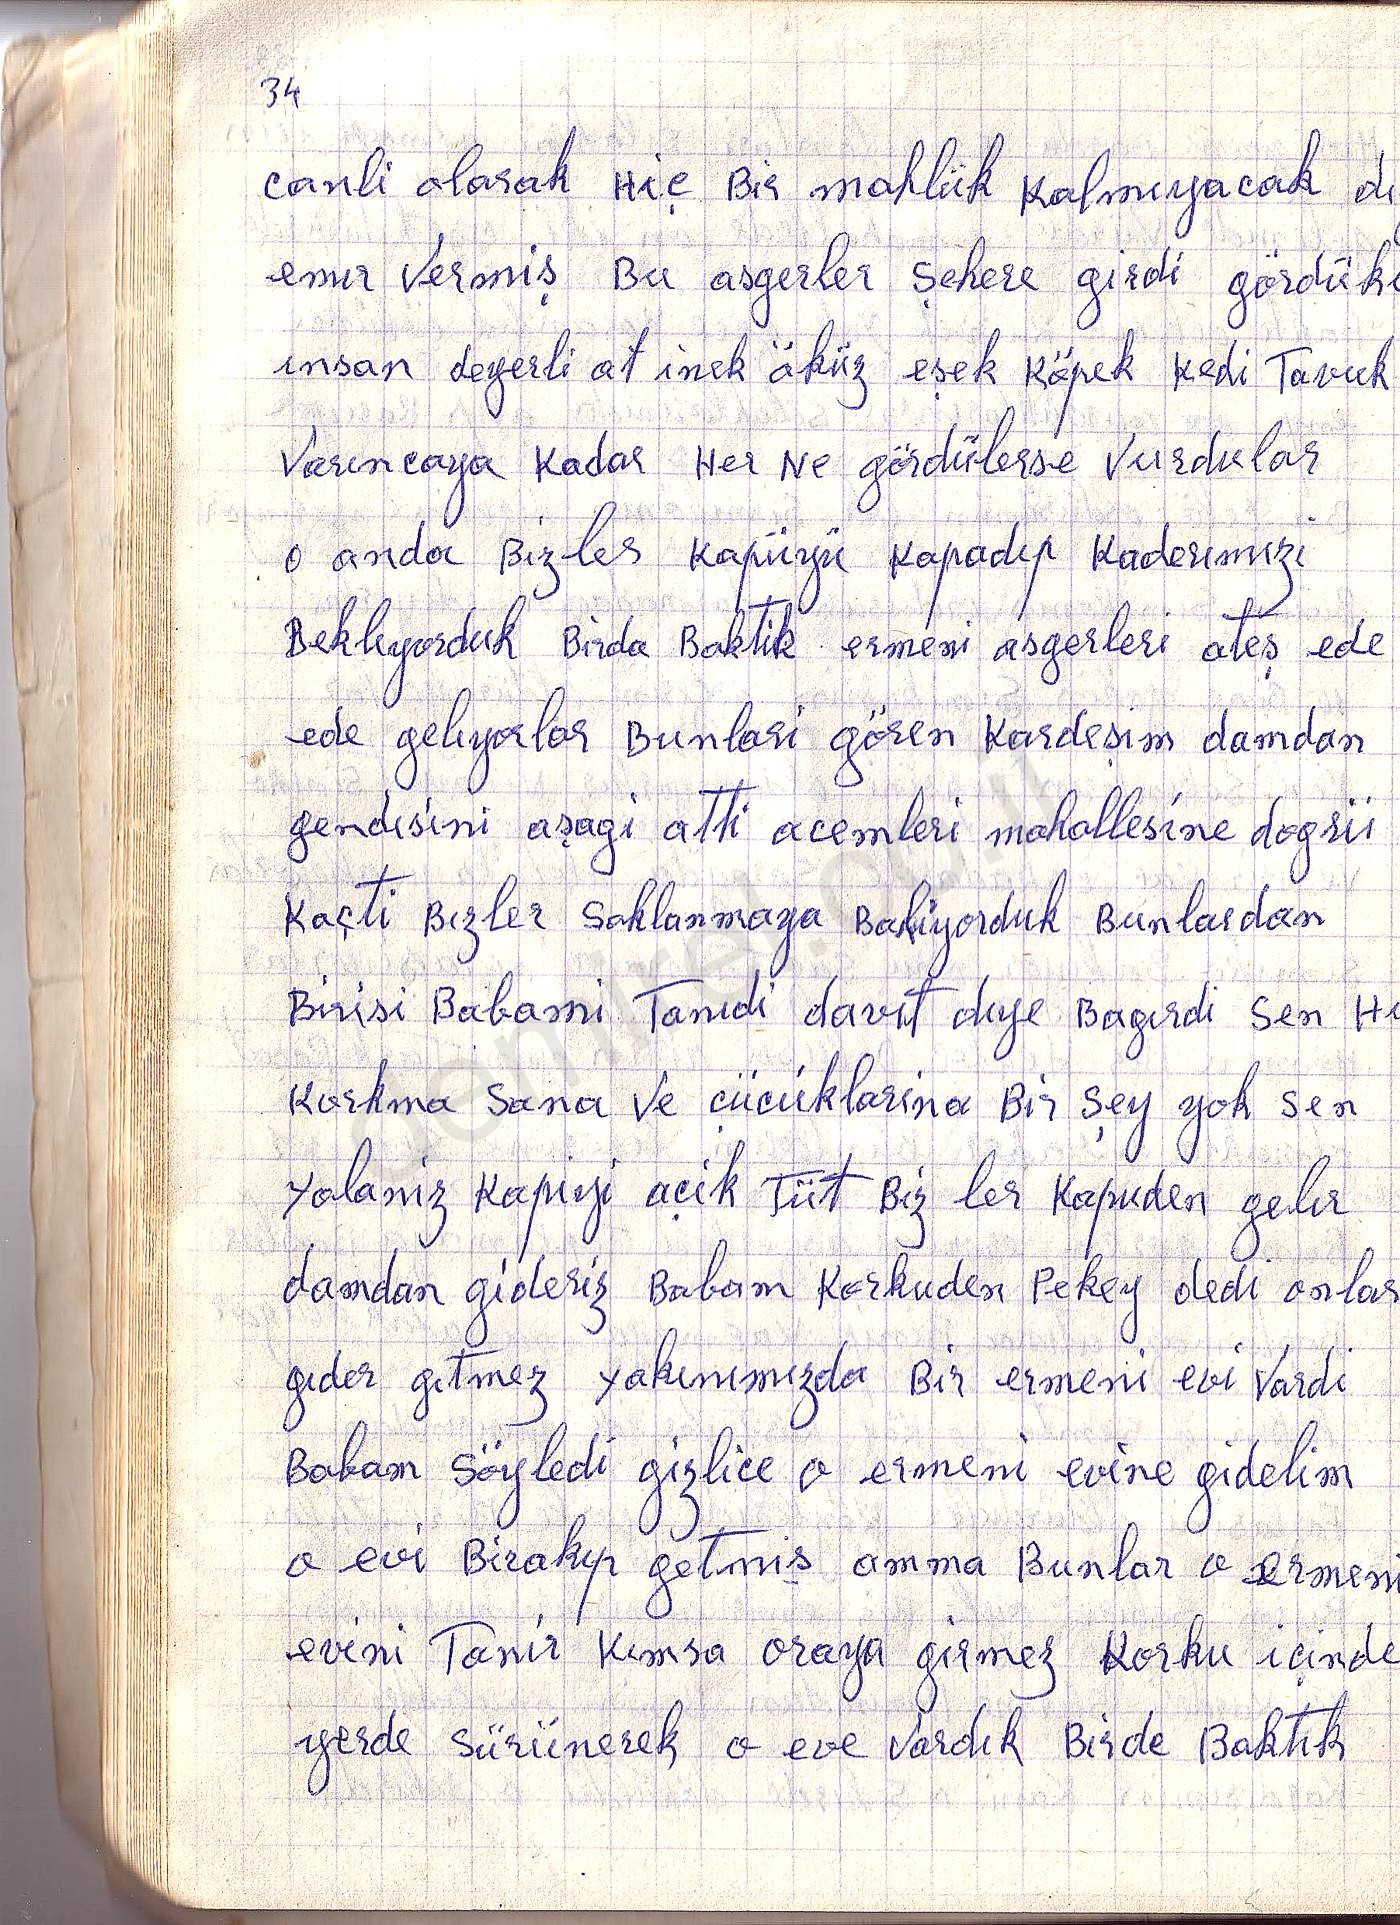 34
canli olarak Hiç Bir mahlük Kalmıyacak
emır Vermiş Bu asgerler şehere girdi
ınsan deyerli at inek öküz eşek Köpek Kedi Tavuk
Varıncaya Kadar Her Ne gördülerse Vurdular
o anda Bizler Kapüyü Kapadıp Kaderımızi
Beklıyorduk Birda Baktik ermeni asgerleri ateş ede
ede gelıyorlar Bunlari gören Kardeşim damdan
gendısini aşagi atti acemleri mahallesine dogrü
Kaçti Bızler Saklanmaya Bakiyorduk Bunlardan
Birisi Babami Tanıdi davıt dıye Bagırdi Sen
Korkma Sana Ve çücüklarina Bir Şey yok Sen
Yalaniz Kapiyi açik Tüt Biz ler Kapuden gelır
damdan gideriz Babam Korkuden Pekey dedi onlar
gıder gıtmez Yakınımızda Bir ermeni evi Vardi
Babam Söyledi gizlice o ermeni evine gidelim
o evi Birakıp getmiş amma Bunlar o ermeni
evini Tanir Kımsa oraya girmez Korku içinde
yerde Sürünerek o eve Vardık Birde Baktık
demirel.co.il